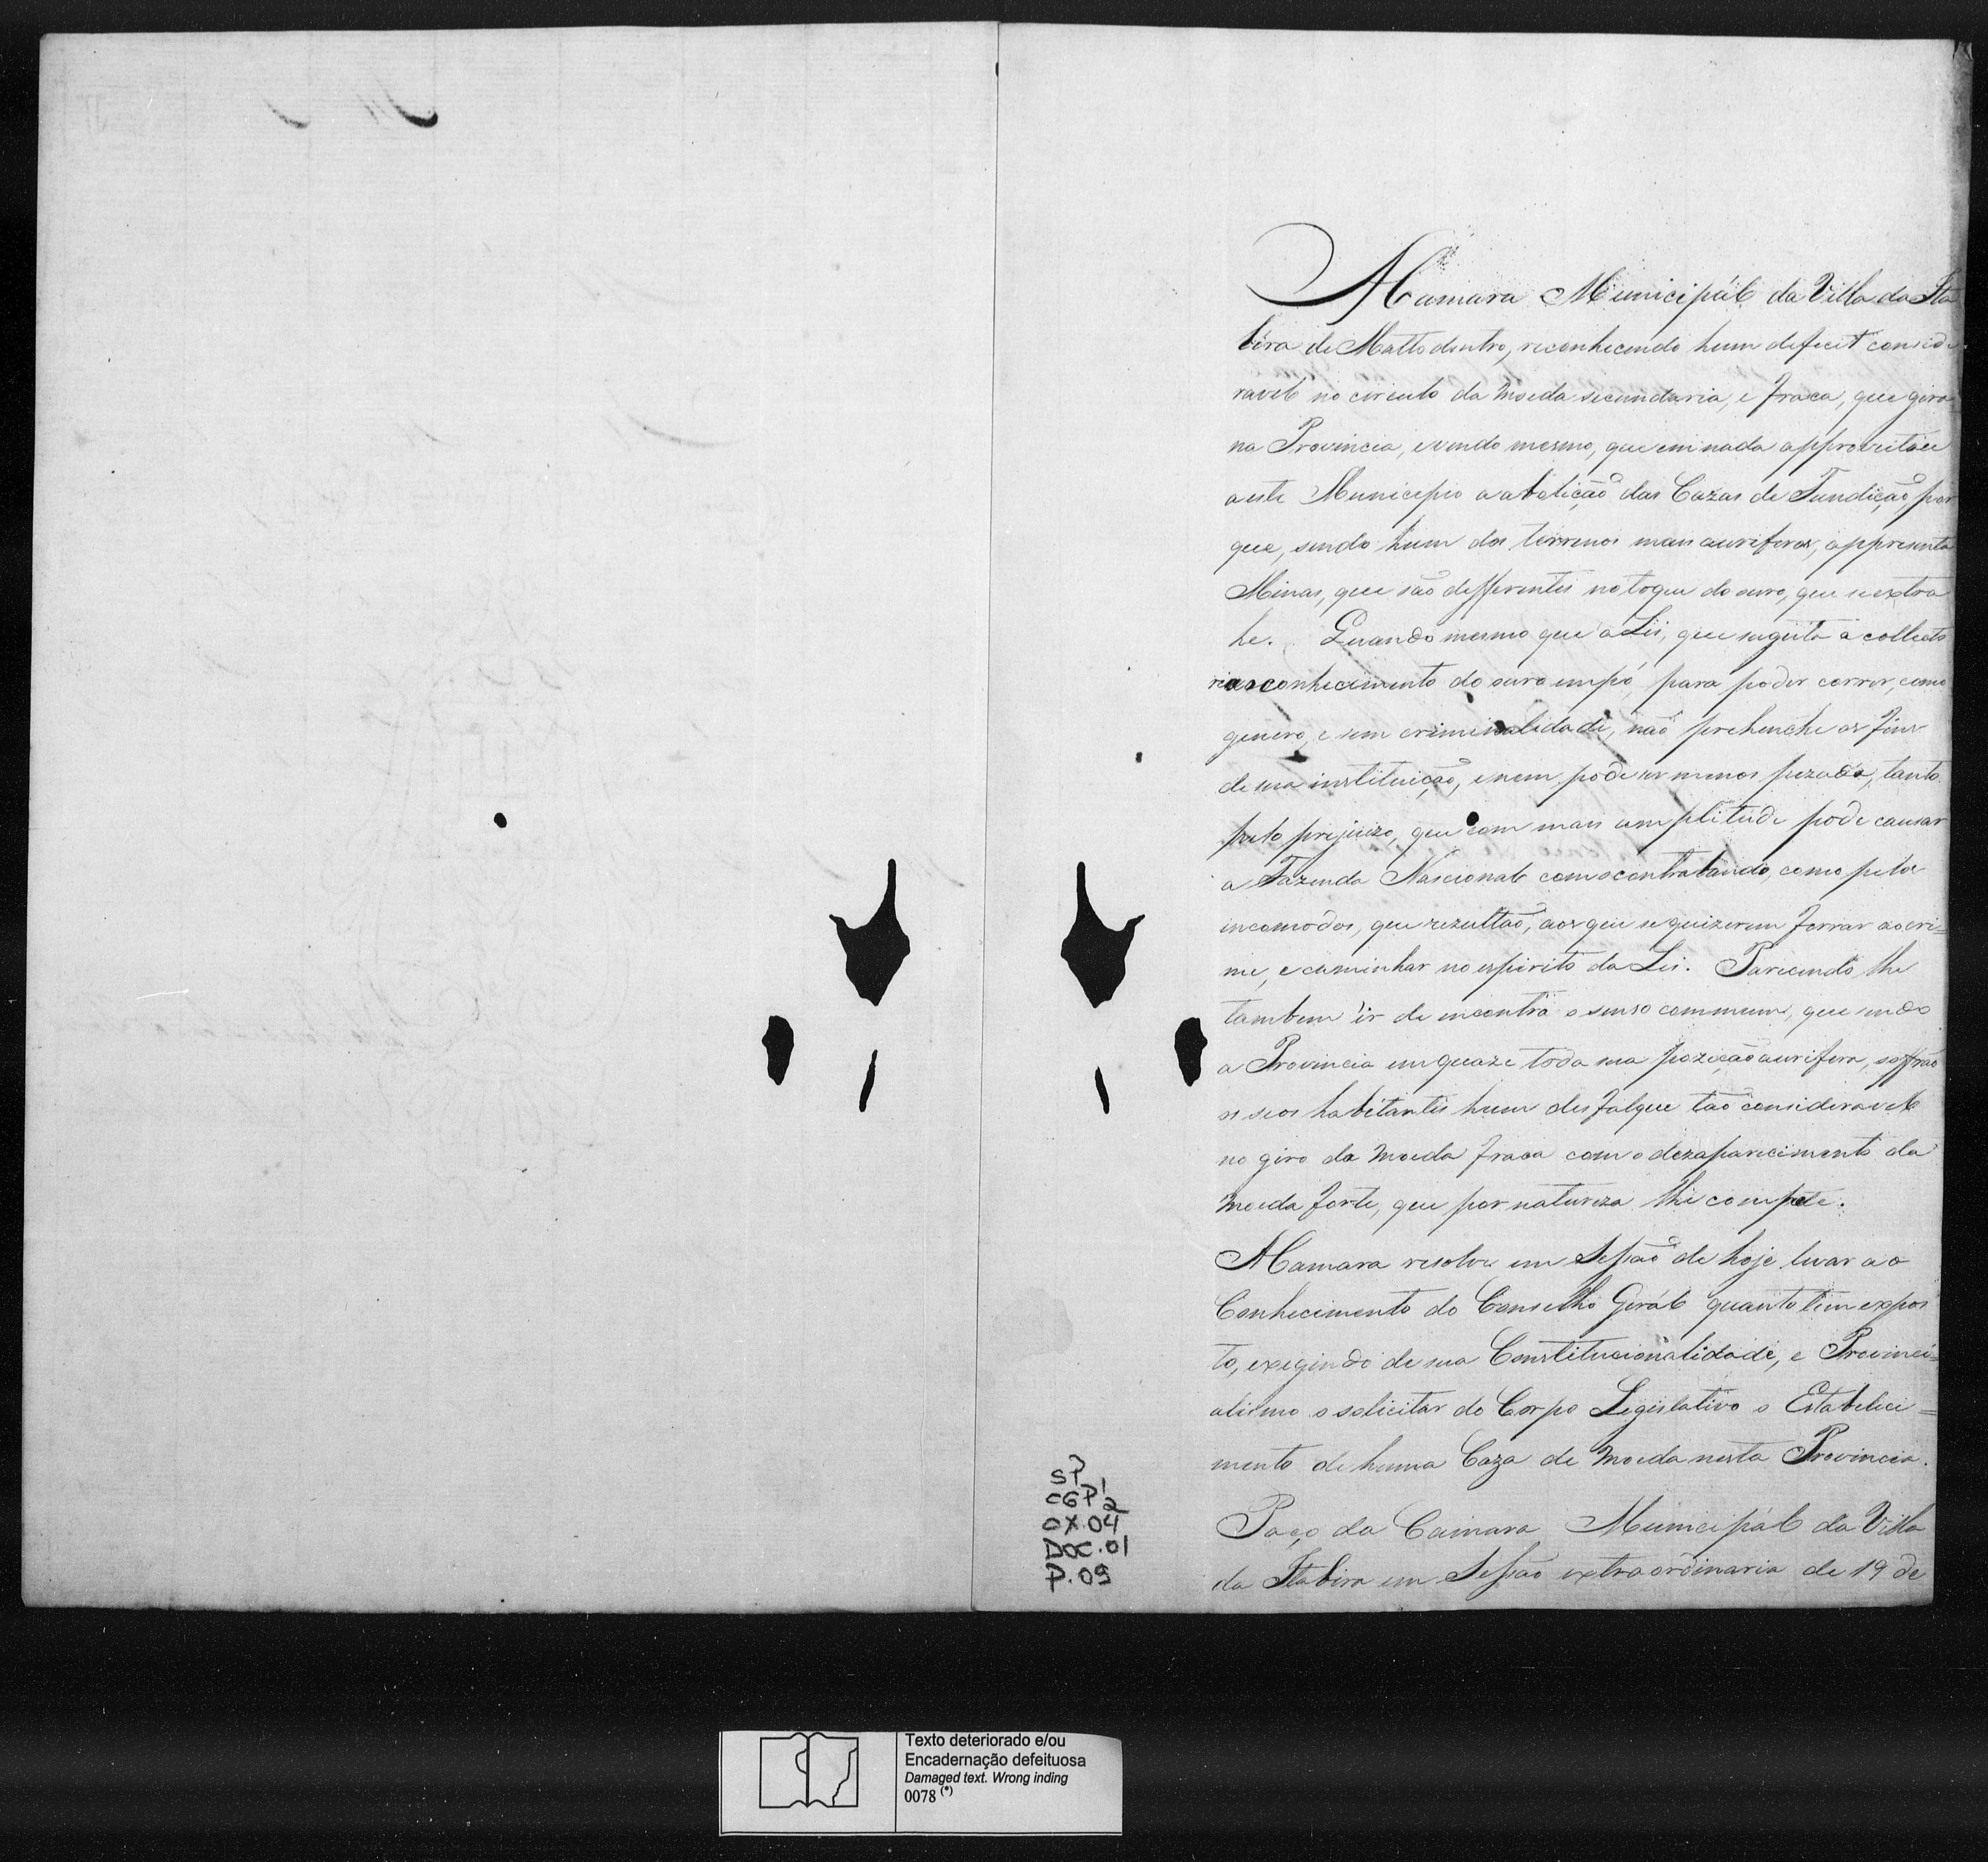 A Camara Municipál da Villa da Ita
bira de Matto dentro, reconhecendo hum deficit conside
ravel no circulo da moeda secundaria, e fraca, que gira
na Provincia, e vendo mesmo, que em nada approveitou
a este Municipio a abolição das Cazas de Fundição, por
que, sendo hum dos terrenos mais auriferos, appresenta
Minas, que são differentes no toque do ouro, que se extra
he. Quando mesmo que a Lei, que sugeita a collecto
rias conhecimento do ouro em pó, para poder correr, como
genero, e sem criminalidade, não prehenche os fins
de sua instituição, e nem pode ser menos pezada, tanto
pelo prejuizo, que com mais amplitude pode causar
a Fazenda Nascional com o contrabando, como pelos
incomodos, que rezultão, aos que se quizerem forrar ao cri=
me, e caminhar no espirito da Lei. Parecendo lhe
tambem ir de encontro o senso commum, que sendo
a Provincia em quaze toda sua pozição aurifera, soffrão
os seos habitantes hum desfalque tão consideravel
no giro da moeda fraca com o dezaparecimento da
moeda forte, que por natureza lhe compete.
A Camara resolve em Sessão de hoje levar ao
Conhecimento do Conselho Gerál quanto tem expos
to, exegindo de sua Constitucionalidade, e Provinci=
alismo o solicitar do Corpo Legislativo o Estabeleci=
mento de huma Caza de Moeda nesta Provincia.
Paço da Camara Municipál da Villa
da Itabira em Sessão extraordinaria de 19 de
SP
CGP¹2
CX.04
DOC.01
P.09
Texto deteriorado e/ou
Encadernação defeituosa
Damaged text. Wrong inding
0078 (*)